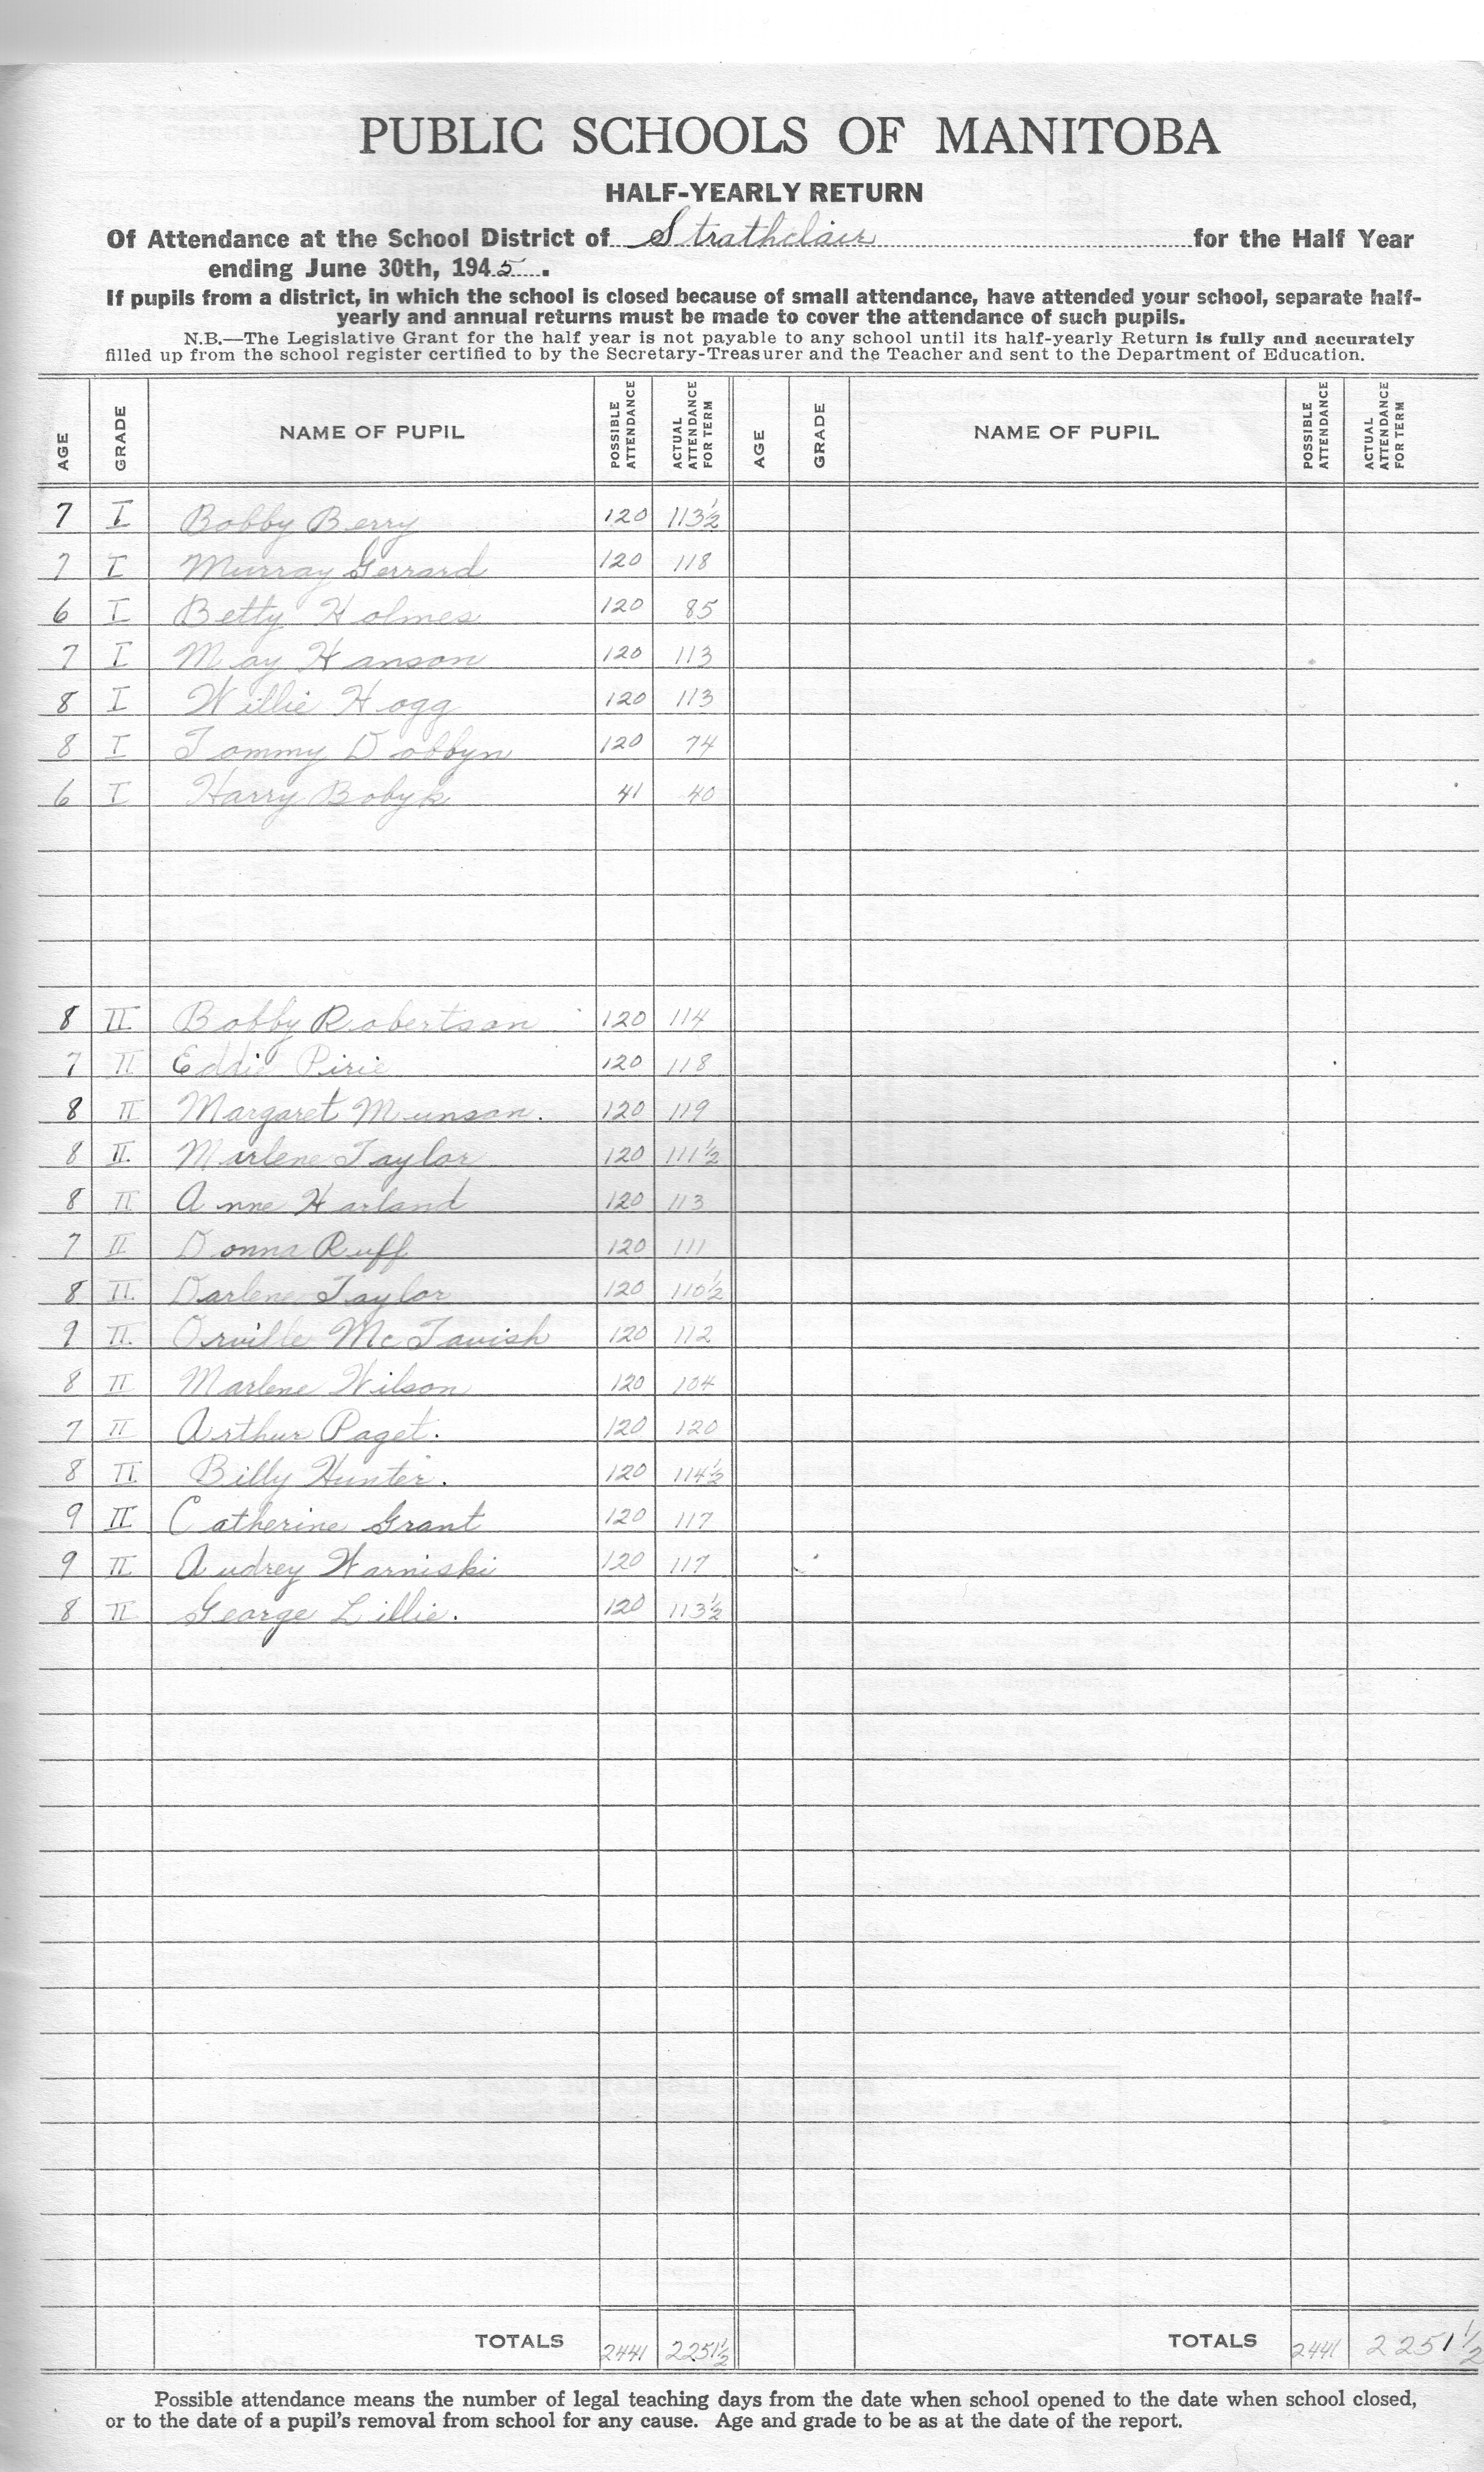 PUBLIC SCHOOLS OF MANITOBA
HALF-YEARLY RETURN
Of Attendance at the School District of Strathclair for the Half Year
ending June 30th, 1945.
If pupils from a district, in which the school is closed because of small attendance, have attended your school, separate half-
yearly and annual returns must be made to cover the attendance of such pupils.
N.B.—The Legislative Grant for the half year is not payable to any school until its half-yearly Return is fully and accurately
filled up from the school register certified to by the Secretary-Treasurer and the Teacher and sent to the Department of Education.
AGE GRADE NAME OF PUPIL POSSIBLE ATTENDANCE ACTUAL ATTENDANCE FOR TERM AGE GRADE NAME OF PUPIL POSSIBLE ATTENDANCE ACTUAL ATTENDANCE FOR TERM
7 I Bobby Berry 120 113½
7 I Murray Gerrard 120 118
6 I Betty Holmes 120 85
7 I May Hanson 120 113
8 I Willie Hogg 120 113
8 I Tommy Dobbyn 120 74
6 I Harry Bobyk 41 40
8 II Bobby Robertson 120 114
7 II Eddie Pirie 120 118
8 II Margaret Munson. 120 119
8 II. Marlene Taylor 120 111½
8 II Anne Harland 120 113
7 II Donna Ruff 120 111
8 II. Darlene Taylor 120 110½
9 II. Orville McTavish 120 112
8 II Marlene Wilson 120 104
7 II Arthur Paget. 120 120
8 II. Billy Hunter. 120 114½
9 II Catherine Grant 120 117
9 II Audrey Warniski 120 117
8 II George Lillie. 120 113½
TOTALS 2441 2251½ TOTALS 2441 2251½
Possible attendance means the number of legal teaching days from the date when school opened to the date when school closed,
or to the date of a pupil's removal from school for any cause. Age and grade to be as at the date of the report.